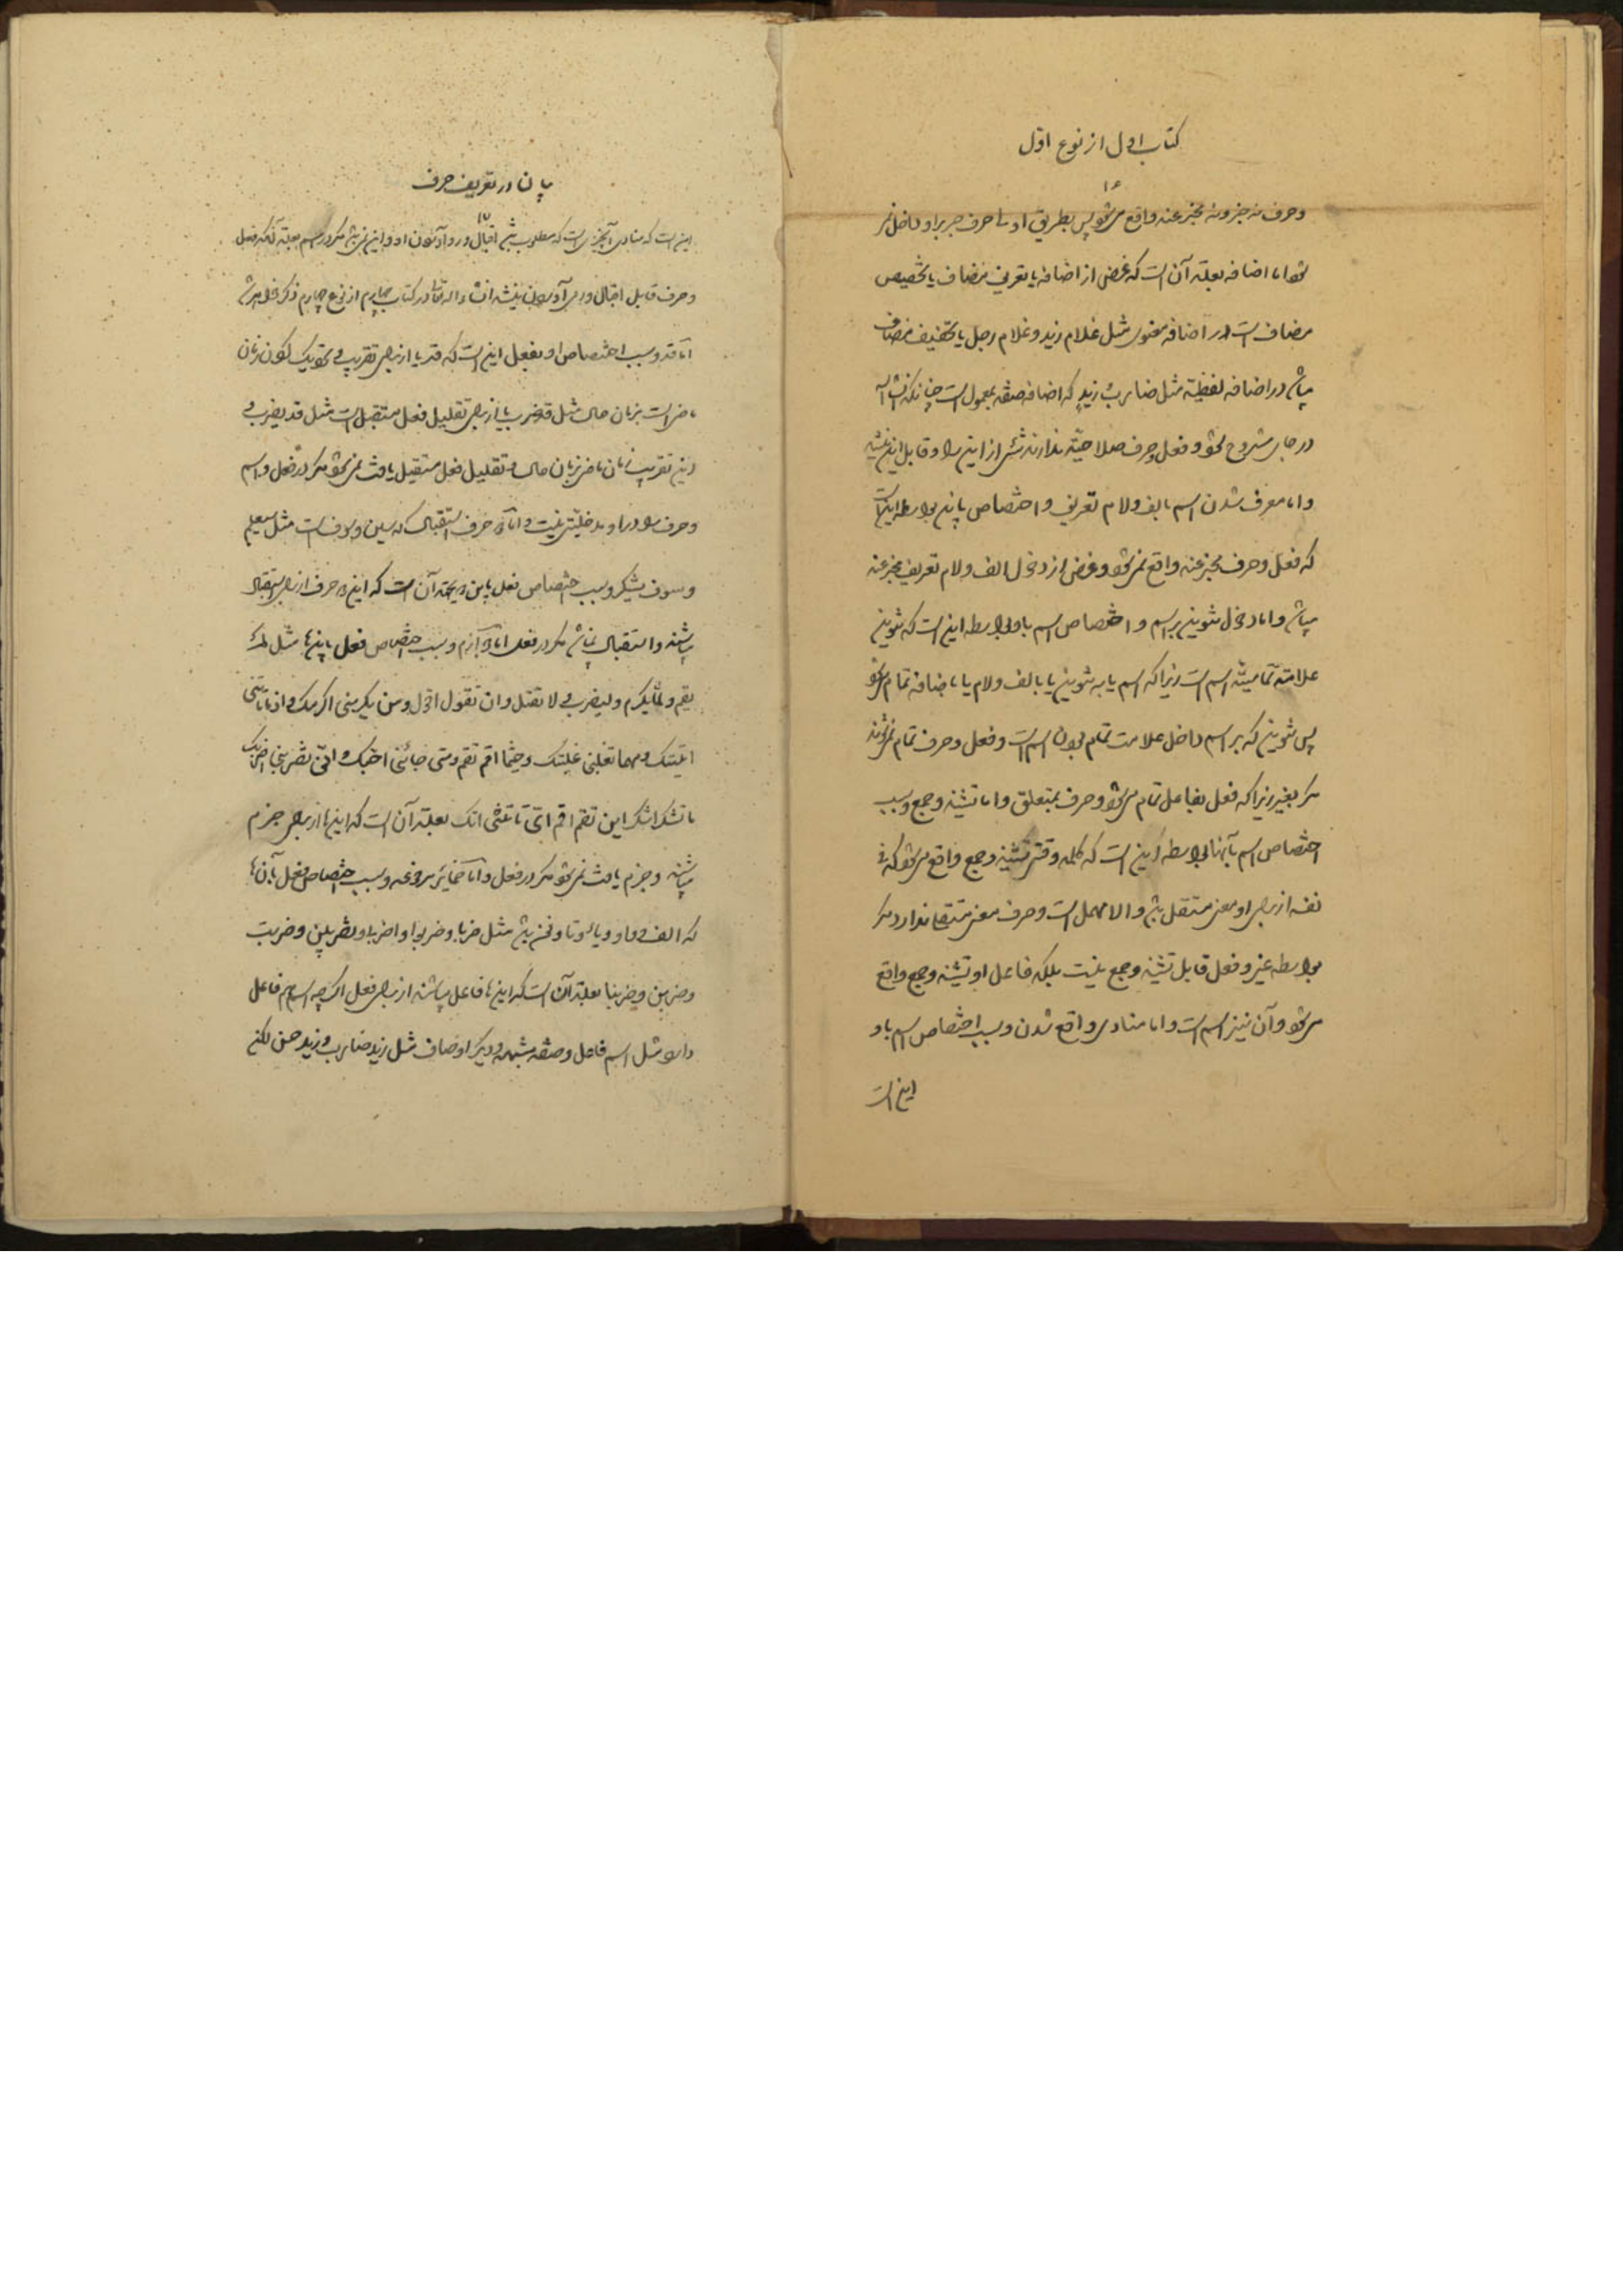 کتاب اول از نوع اوّل
۱۶
وحرف نه جزء ونه مخبر عنه واقع میشود پس بطریق اولی حرف جر بر او داخل نمی
شود اما اضافه بعلة آن است که غرض از اضافه یا تعریف مضاف یا تخصیص
مضاف است در اضافه معنوی مثل غلام زید و غلام رجل یا تخفیف مضاف
میباشد در اضافه لفظیّه مثل ضارب زیدٍ که اضافه صفة بمعمول است چنانکه انشاء الله
در جای مشروح شود و فعل وحرف صلاحیّة ندارند شئی از این را و قابل این نیستند
واما معرف شدن اسم بالف ولام تعریف و اختصاص باین بواسطه اینست
که فعل وحرف مخبر عنه واقع نمیشود وغرض از دخول الف ولام تعریف مخبر عنه
میباشد واما دخول تنوین بر اسم و اختصاص اسم باو بواسطه این است که تنوین
علامة تمامیّة اسم است زیرا که اسم یا به تنوین یا بالف ولام یا باضافه تمام میشود
پس تنوین که بر اسم داخل علامت تمام بودن اسم است و فعل وحرف تمام نمیشوند
مگر بغیر زیرا که فعل بفاعل تمام میشود وحرف بمتعلق واما تثنیه وجمع وسبب
اختصاص اسم بآنها بواسطه این است که کلمه وقتی تثنیه وجمع واقع میشود که فی
نفسه از برای او معنی مستقل باشد والا مهمل است وحرف معنی مستقل ندارد مگر
بواسطه غیر و فعل قابل تثنیه وجمع نیست بلکه فاعل او تثنیه وجمع واقع
میشود وآن نیز اسم است واما منادی واقع شدن وسبب اختصاص اسم باو
این است
بیان در تعریف حرف
۱۷
این است که منادی آنچیزی است که مطلوب باشد اقبال و رو آوردن او واین نمیباشد مگر در اسم بعلة آنکه فعل
وحرف قابل اقبال ورو آوردن نیستند انشاء الله تعالی در کتاب چهارم از نوع چهارم ذکر خواهد شد
امّا قد وسبب اختصاص او بفعل این است که قد یا از برای تقریب و نزدیک نمودن زمان
ماضی است بزمان حال مثل قد ضرب یا از برای تقلیل فعل مستقبل است مثل قد یضرب و
این تقریب زمان ماضی بزمان حال و تقلیل فعل مستقبل یافت نمیشود مگر در فعل و اسم
وحرف را در او مدخلیّتی نیست و امّا دو حرف استقبال که سین و سوف است مثل سیعلم
وسوف یشکر وسبب اختصاص فعل باین دو بجهة آن است که این دو حرف از برای استقبال
میباشند واستقبال نمیباشد مگر در فعل امّا جوازم وسبب اختصاص فعل باینها مثل لم
یقم ولمّا یکرم ولیضرب و لا تقتل وان تقول اقول ومن یکرمنی اکرمک و اذ ما تاتنی
اتیتک ومهما تغلبنی غلبتک وحیثما اقم تقم ومتی جائنی اجبک و انّی تضربنی اضربک
ما تشکر اشکر این تقم اقم ایّ تاتنی اتک بعلة آن است که اینها از برای جزم
میباشند وجزم یافت نمیشود مگر در فعل وامّا ضمائر مرفوعه وسبب اختصاص فعل بآنها
که الف و واو و یا و تا ونون باشد مثل ضربا وضربوا واضربی وتضربین وضربت
وضربن وضربنا بعلة آن است که اینها فاعل میباشند از برای فعل اگرچه اسم هم فاعل
دارد مثل اسم فاعل وصفة مشبهه و دیگر اوصاف مثل زید ضارب وزید حسن لکن